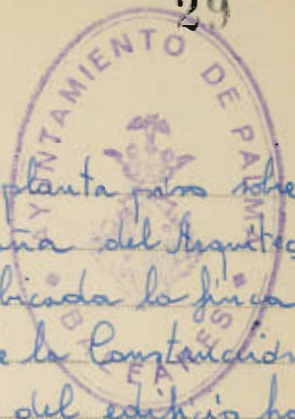 29
AYUNTAMIENTO DE PALMA
BALEARES
planta piso sobre
del Arquitec
bicada la finca
e la Construcción
del edificio